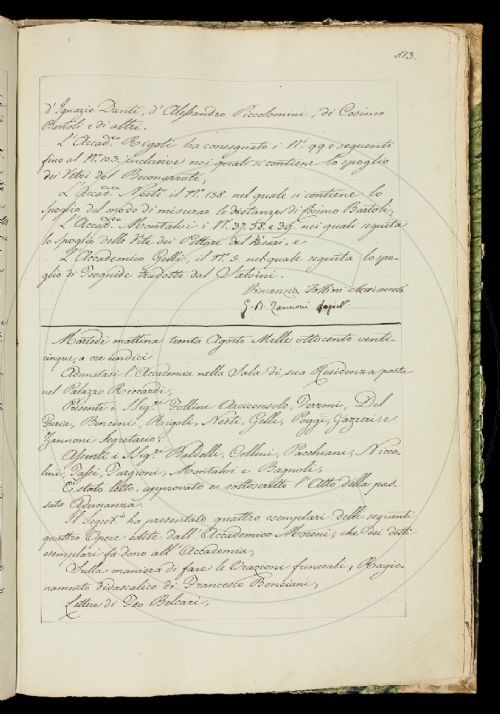 513.
d'Ignazio Danti, d'Alessandro Piccolomini, di Cosimo
Bartoli e di altri.
L'Accad.co Rigoli ha consegnato i N.i 99 e seguenti
fino al N.o 103. inclusive nei quali si contiene lo spoglio
dei Vetri del Buonarroti;
L'Acad.co Nesti il N.o 158 nel quale si contiene lo
spoglio del modo di misurar le distanze di Cosimo Bartoli;
L'Accad.co Montalvi i N.i 37. 38. e 39. nei quali seguita
lo spoglio delle Vite dei Pittori del Vasari, e
L'Accademico Gelli, il N.o 3. nel quale seguita lo spo-
glio di Teognide tradotto dal Salvini.
Vincenzio Follini
G. B. Zannoni Segret.o
Martedì mattina trenta Agosto Mille ottocento venti-
cinque, a ore undici
Adunatasi l'Accademia nella Sala di sua Residenza posta
nel Palazzo Riccardi,
Presenti i Sigg.ri Follini Arciconsolo, Ferroni, Del
Furia, Bencini, Rigoli, Nesti, Gelli, Poggi, Gazzeri, e
Zannoni Segretario,
Assenti i Sigg.ri Baldelli, Collini, Pacchiani, Nicco-
lini, Tassi, Targioni, Montalvi e Bagnoli,
È stato letto, approvato e sottoscritto l'Atto della pas-
sata Adunanza.
Il Segret.o ha presentato quattro esemplari delle seguenti
quattro Opere edite dall'Accademico Moreni, che dei detti
esemplari fa dono all'Accademia,
Sulla maniera di fare le Orazioni funerali, Ragio-
namento didascalico di Francesco Bonciani,
Lettere di Feo Belcari,